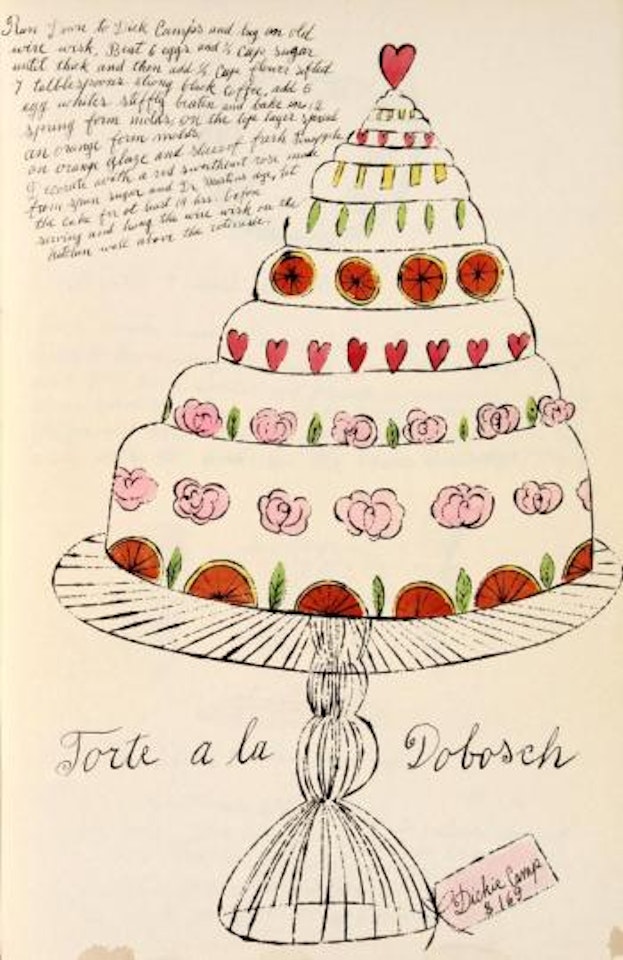 Run down to Dick Camps and buy an old
wire wisk. Beat 6 eggs and ½ Cup sugar
until thick and then add ½ Cup flower sifted
7 tablespoons strong black coffee, add 6
egg whites stiffly beaten and bake in 12
spring form molds, on the top layer spread
an orange form molds.
an orange glaze and slices of fresh
Decorate with a red sweetheart rose made
from spun sugar and Dr. Martins dye, let
the cake for at least 19 hrs. before
serving and hang the wire wisk on the
kitchen wall above the rotissule.
Torte a la Dobosch
Dickie Camp
$ 1.69